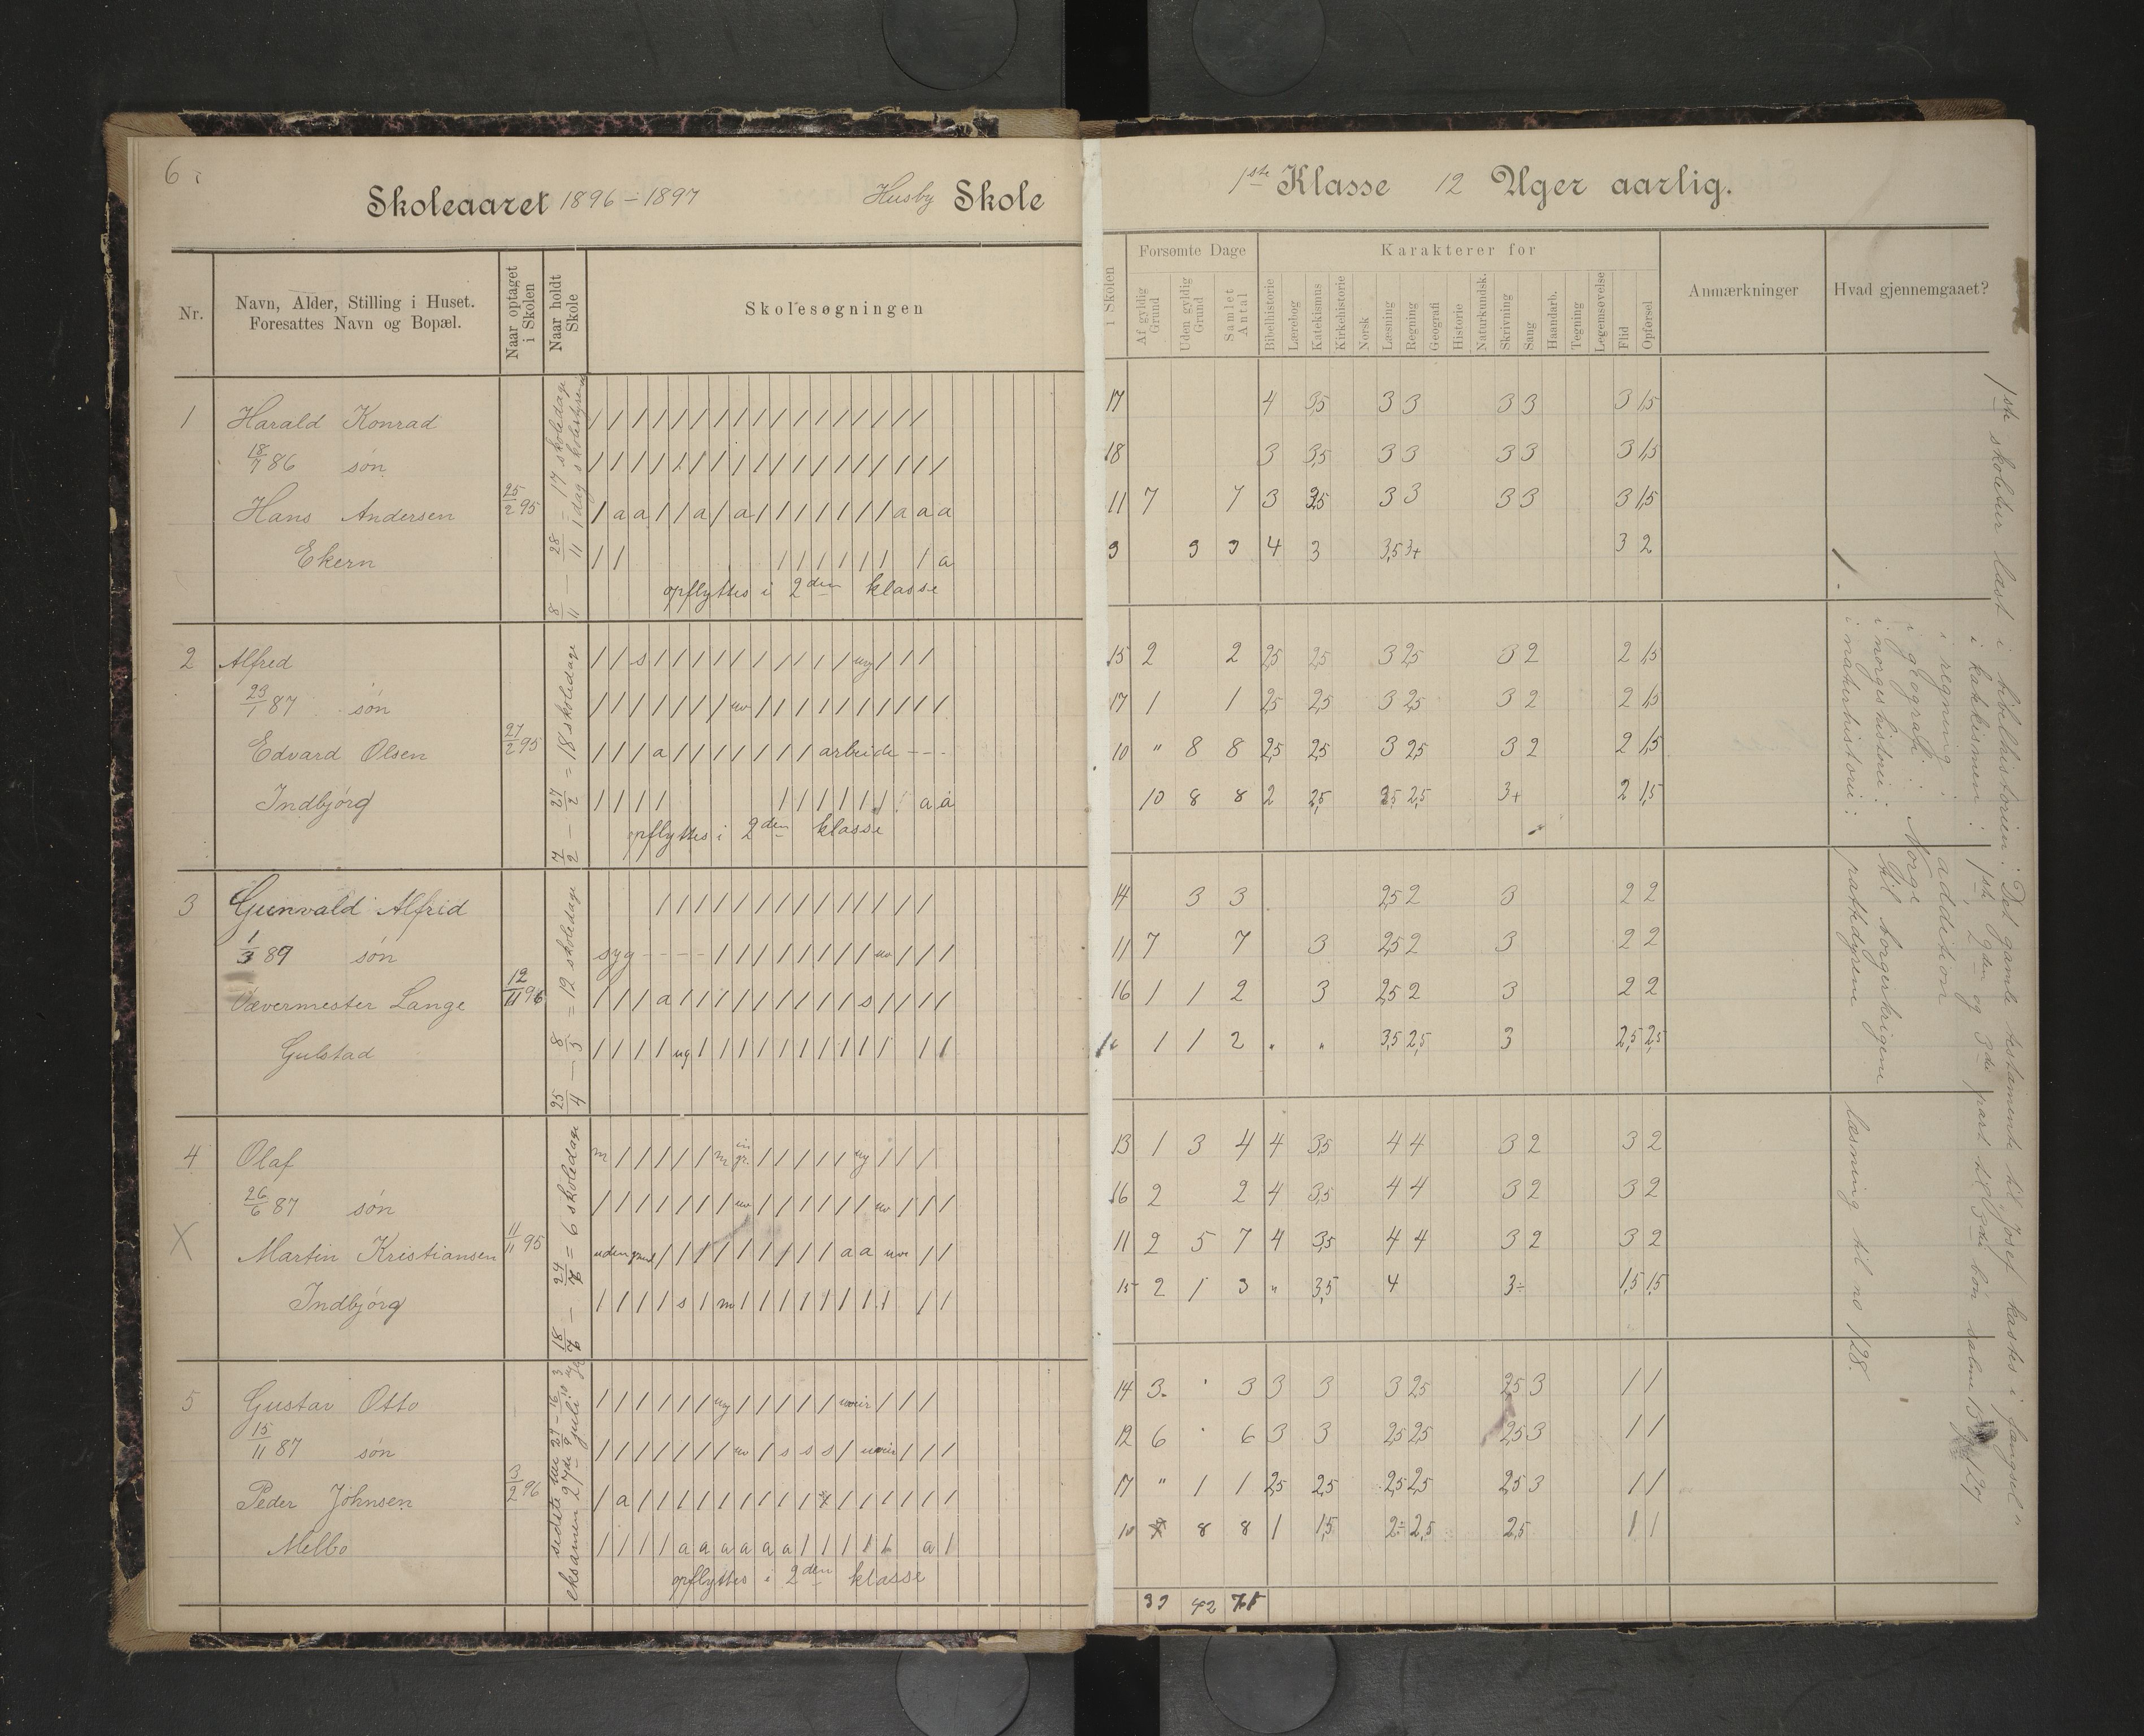 6
Skoleaaret 1896-1897 Husby Skole
1ste Klasse 12 Uger aarlig.
Nr.
Navn, Alder, Stilling i Huset.
Foresattes Navn og Bopæl.
Naar optaget
i Skolen
Naar holdt
Skole
Skolesøgningen
i Skolen
Forsømte Dage
Af gyldig
Grund
Uden gyldig
Grund
Samlet
Antal
Karakterer for
Bibelhistorie
Lærebog
Katekismus
Kirkehistorie
Norsk
Læsning
Regning
Geografi
Historie
Naturkundsk.
Skrivning
Sang
Haandarb.
Tegning
Legemsøvelse
Flid
Opførsel
Anmærkninger
Hvad gjennemgaaet?
1 Harald Konrad
18/7 86 søn
Hans Andersen
Ekern
25/2 95
8/11 — 28/11 = 17 skoledage
1 dag skolestyrem
/ / / / / / / / / / / / / / / / /
/ / / / / / / / / / / / / / / / / /
/ a a / / a / a / / / / / / / a a a
/ / / / / / / / / a
opflyttes i 2den klasse
17 4 3,5 3 3 3 3 3 1,5
18 3 3,5 3 3 3 3 3 1,5
11 7 7 3 3,5 3 3 3 3 3 1,5
9 9 9 4 3 3,5 3+ 3 2
2 Alfred
23/1 87 søn
Edvard Olsen
Indbjórg
27/2 95
7/2 — 27/2 = 18 skoledage
/ / s / / / / / / / / / / ug / / /
/ / / / / / / uv / / / / / / / / / /
/ / / a / / / / / / / arbeide - - -
/ / / / / / / / / / a a
opflyttes i 2den klasse
15 2 2 2,5 2,5 3 2,5 3 2 2 1,5
17 1 1 2,5 2,5 3 2,5 3 2 2 1,5
10 " 8 8 2,5 2,5 3 2,5 3 2 2 1,5
10 8 8 2 2,5 2,5 3+ 2 1,5
3 Gunvald Alfrid
1/3 89 søn
Vævermester Lange
Gulstad
12/11 96
25/4 — 8/5 = 12 skoledage
/ / / / / / / / / / / / / /
syg - - - - / / / / / / / / uv / / /
/ / / a / / / / / / / / / s / / / /
/ / / / ug / / / / / / / / / / /
14 3 3 2,5 2 3 2 2
11 7 7 3 2,5 2 3 2 2
16 1 1 2 3 2,5 2 3 2 2
1 1 2 " " 3,5 2,5 3 2,5 2,5
4 Olaf
26/6 87 søn
Martin Kristiansen
Indbjórg
11/11 95
18/7 — 24/7 = 6 skoledage
m / / / / / m / / / / / ug / / /
/ / / / / / / uv / / / / / / uv / / /
uden grund / / / / / / / / / a a uv / /
/ / / / s / m / / / / / / / / /
13 1 3 4 4 3,5 4 4 3 2 3 2
16 2 2 4 3,5 4 4 3 2 3 2
11 2 5 7 4 3,5 4 4 3 2 3 2
15 2 1 3 " 3,5 4 3÷ 1,5 1,5
5 Gustav Otto
15/11 87 søn
Peder Johnsen
Melbo
3/2 96
eksamen 27de juli
/ / / / / / ug / / / / / uveir / / /
/ / / / / / / uv / s s s / uveir / / /
/ a / / / / / / / / / / / / / / /
/ / / / a a a a a a / / / / / a /
opflyttes i 2den klasse
14 3 3 3 3 3 2,5 2,5 3 1 1
12 6 6 3 3 2,5 2,5 2,5 3 1 1
17 " 1 1 2,5 2,5 2,5 2,5 2,5 3 1 1
10 8 8 1 1,5 2÷ 2,5 2,5 1 1
42
1ste skoletur læst i bibelhistorien: Det gamle testamente til Josef kastes i fangsel
i katekismen: 1ste, 2den og 3die part til 3die bøn
i regning: addition
i geografi: Norge
i norgeshistorie: til borgerkrigene
i naturhistorie: pattedyrene
læsning til no 128.